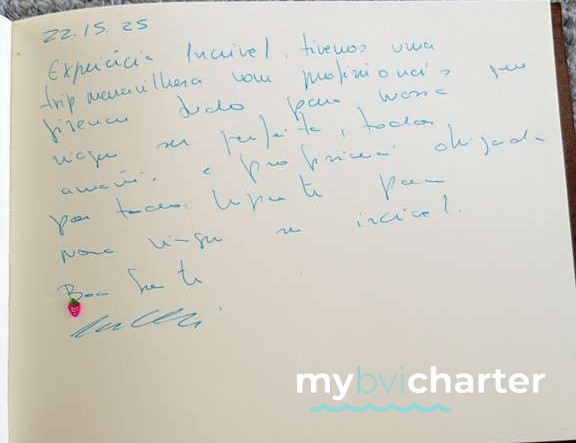 22.15.25
Experiência Incrivel. tivemos uma
trip maravilhosa com profissionais que
fizeram tudo para nossa
viagem ser perfeita, todos
e profissionais obrigada
por todo. para
nossa viagem ser incrivel.
Boa Sorte
mybvicharter